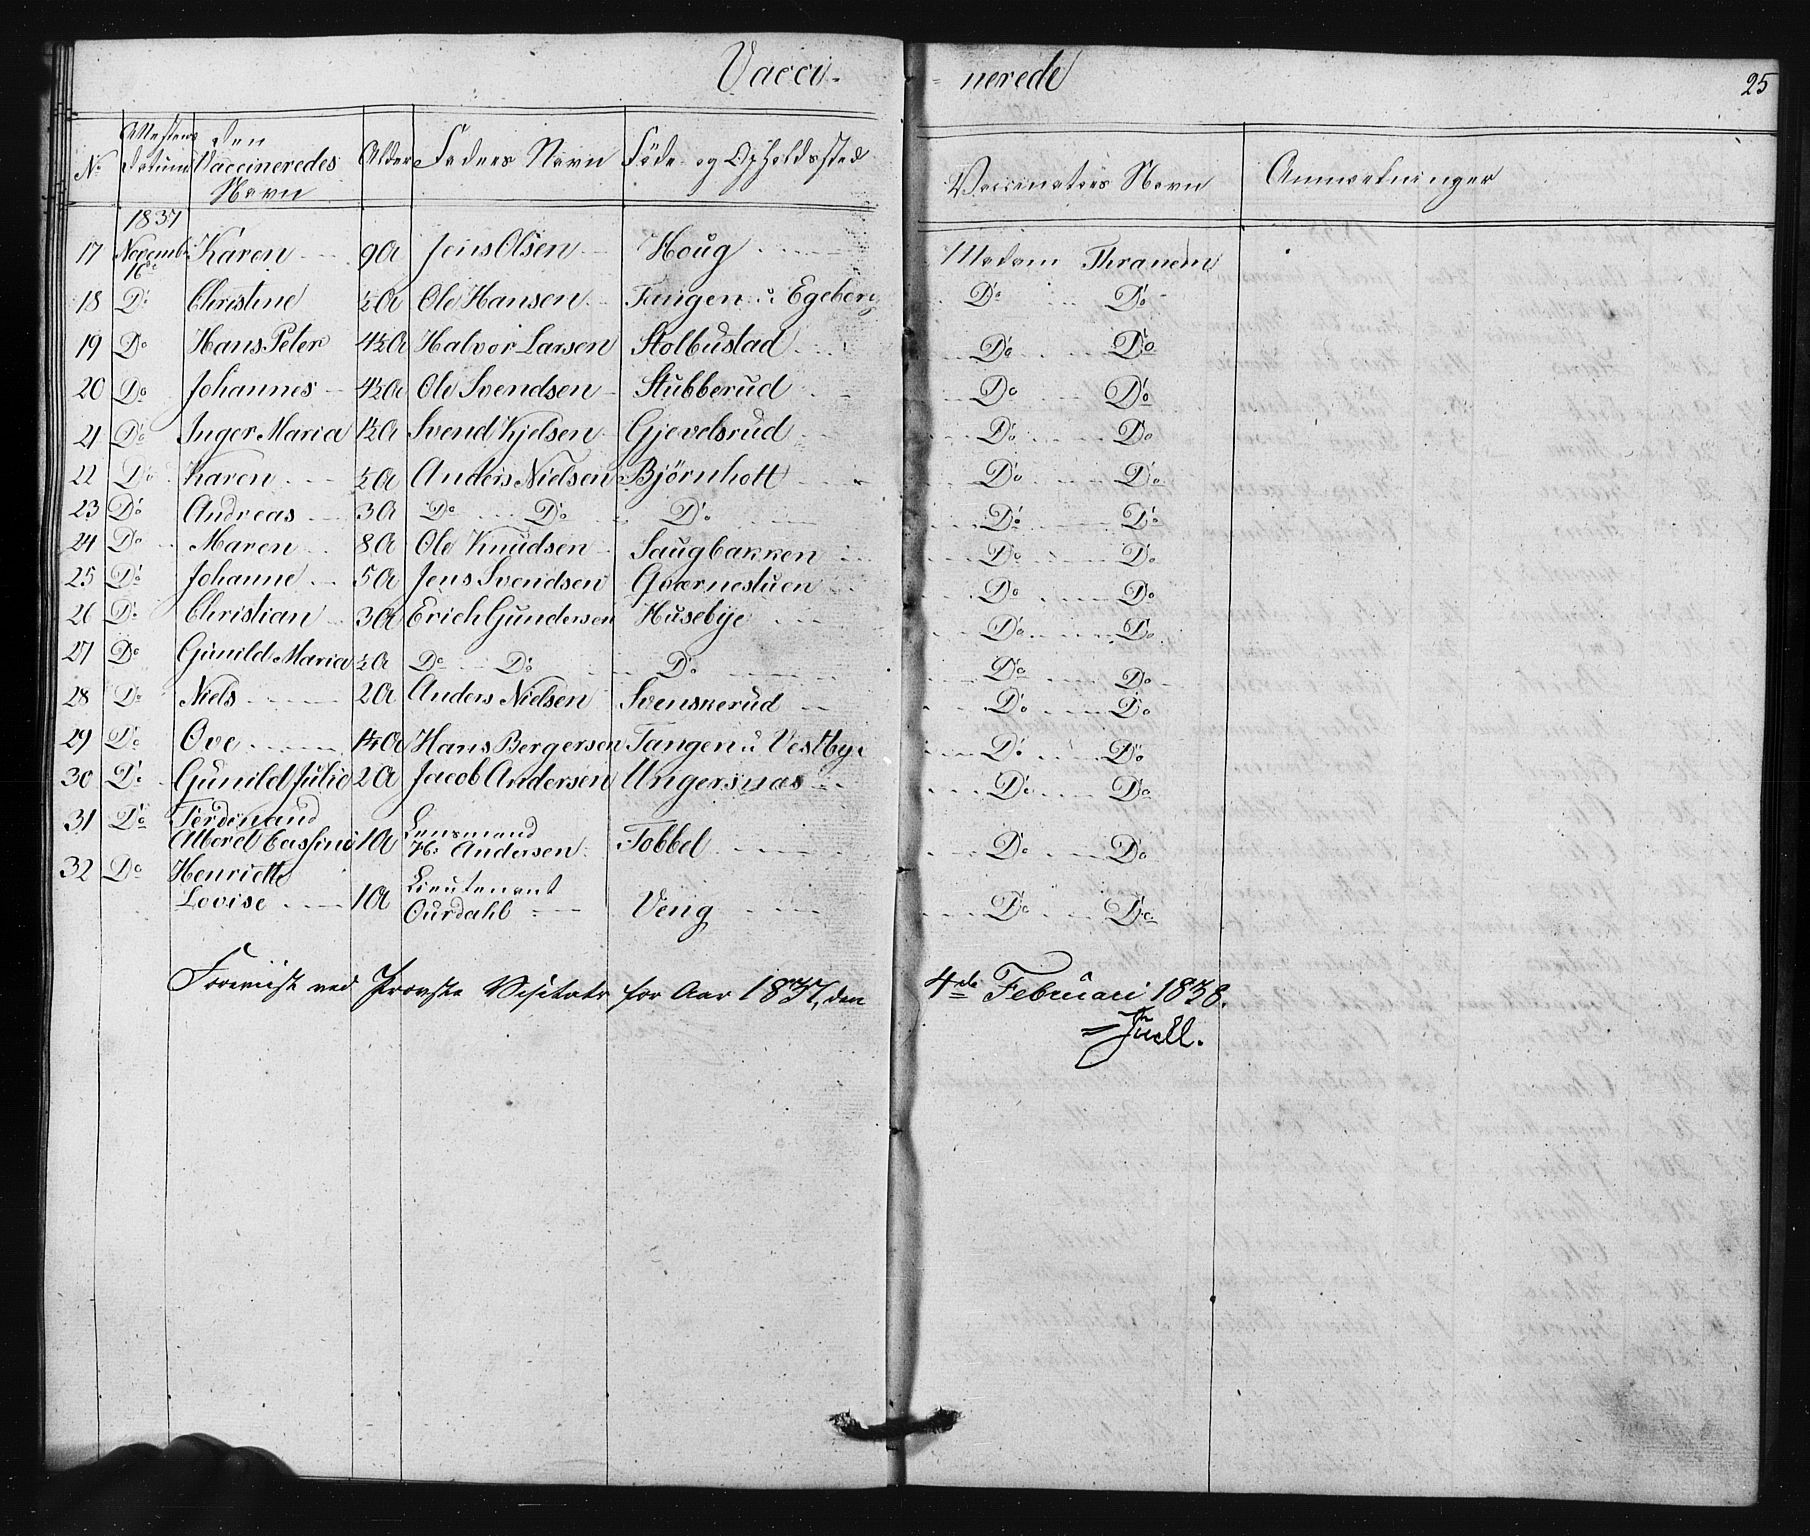 Vacci- nerede 25
No Attestens Datum Den Vaccineredes Navn Alder Faders Navn Föde- og Opholdssted Vaccinateurs Navn Anmærkninger
1837
17 Novemb. 16de Karen 9 A Jens Olsen Houg Madam Thranem
18 Do Christine ½ A Ole Hansen Tangen u Egeberg Do Do
19 Do Hans Peter 4½ A Halvor Larsen Stolbustad Do Do
20 Do Johannes 4½ A Ole Svendsen Stubberud Do Do
21 Do Inger Maria 1½ A Svend Kjelsen Gjevelsrud Do Do
22 Do Karen ½ A Anders Nielsen Björnholt Do Do
23 Do Andreas 3 A Do Do Do Do Do
24 Do Maren 8 A Ole Knudsen Saugbakken Do Do
25 Do Johanne 5 A Jens Svendsen Qværnestuen Do Do
26 Do Christian 3 A Erich Gundersen Husebye Do Do
27 Do Gunild Maria ½ A Do Do Do Do Do
28 Do Niels 2 A Anders Nielsen Svenskerud Do Do
29 Do Ove 1¼ A Hans Bergersen Tangen u Vestbye Do Do
30 Do Gunild Julie 2 A Jacob Andersen Ungersnæs Do Do
31 Do Ferdinand Lensmand
Alberct 1 A Hs Andersen Tobbel Do Do
32 Do Henriette Lieutenant
Lovise 1 A Ourdahl Verig Do Do
Foreviist ved Provste Visitats for Aar 1837, den 4de Februari 1838.
Juell.